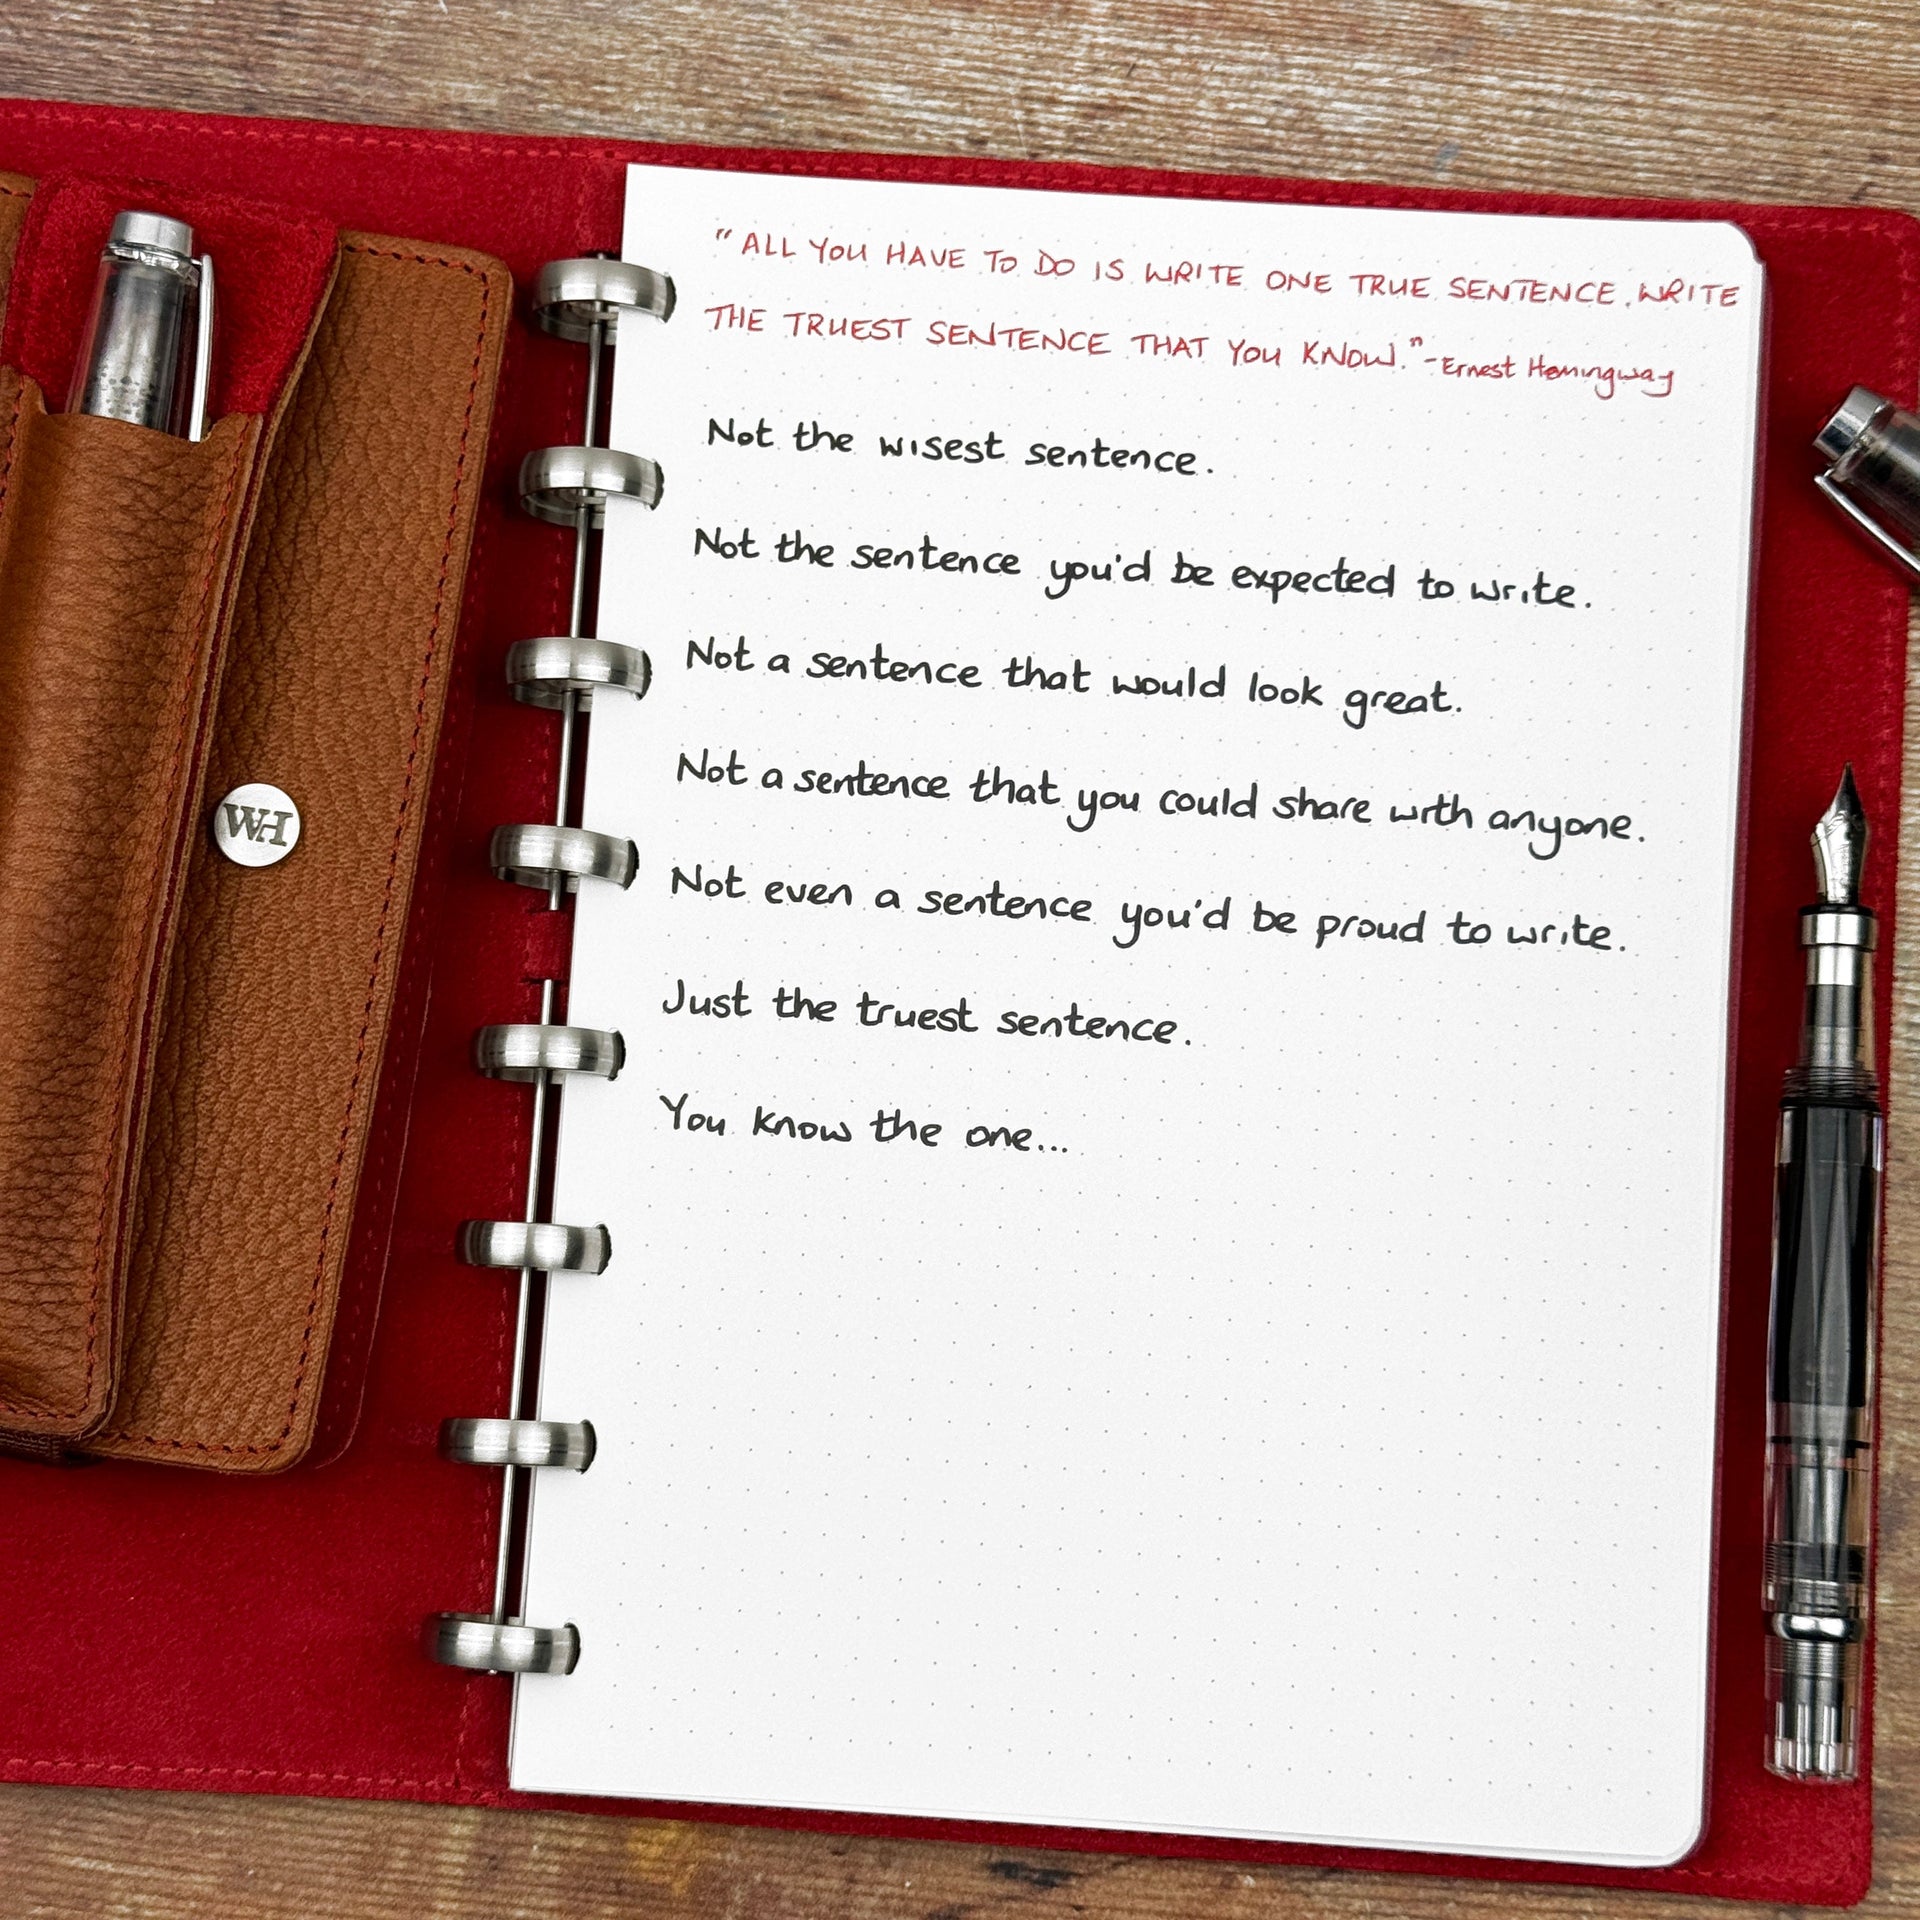 "ALL YOU HAVE TO DO IS WRITE ONE TRUE SENTENCE. WRITE
THE TRUEST SENTENCE THAT YOU KNOW." - Ernest Hemingway
Not the wisest sentence.
Not the sentence you'd be expected to write.
Not a sentence that would look great.
Not a sentence that you could share with anyone.
Not even a sentence you'd be proud to write.
Just the truest sentence.
You know the one...
WH